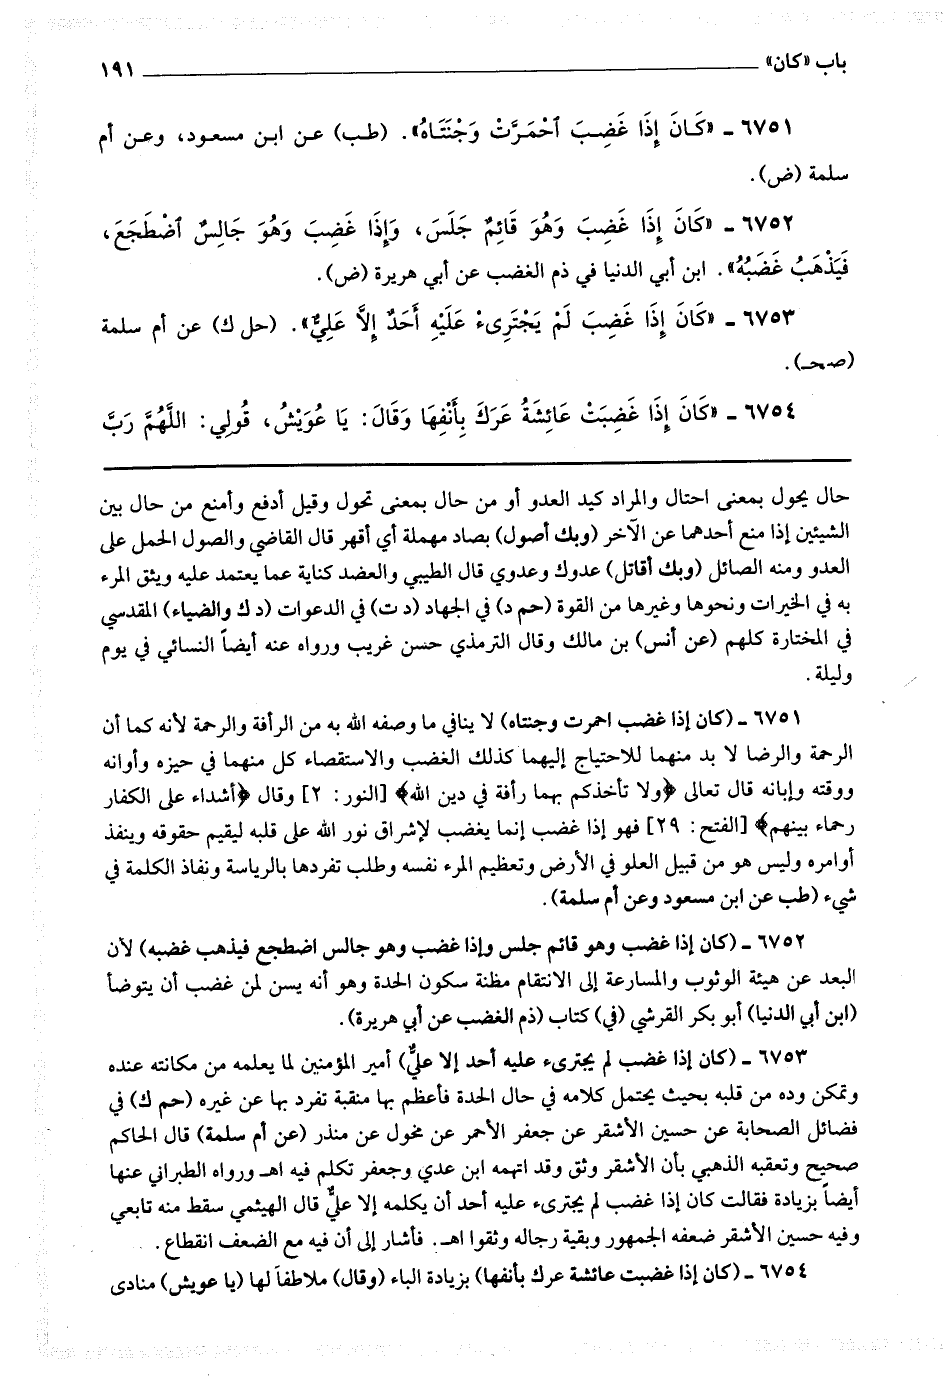 باب «كان» ١٩١
٦٧٥١ ـ «كَانَ إِذَا غَضِبَ ٱحْمَرَّتْ وَجْنَتَاهُ». (طب) عن ابن مسعود، وعن أم
سلمة (ض).
٦٧٥٢ ـ «كَانَ إِذَا غَضِبَ وَهُوَ قَائِمٌ جَلَسَ، وَإِذَا غَضِبَ وَهُوَ جَالِسٌ ٱضْطَجَعَ،
فَيَذْهَبُ غَضَبُهُ». ابن أبي الدنيا في ذم الغضب عن أبي هريرة (ض).
٦٧٥٣ ـ «كَانَ إِذَا غَضِبَ لَمْ يَجْتَرِىءْ عَلَيْهِ أَحَدٌ إِلاَّ عَلِيٌّ». (حل ك) عن أم سلمة
(صحـ).
٦٧٥٤ ـ «كَانَ إِذَا غَضِبَتْ عَائِشَةُ عَرَكَ بِأَنْفِهَا وَقَالَ: يَا عُوَيْشُ، قُولِي: اللَّهُمَّ رَبَّ
حال يحول بمعنى احتال والمراد كيد العدو أو من حال بمعنى تحول وقيل أدفع وأمنع من حال بين
الشيئين إذا منع أحدهما عن الآخر (وبك أصول) بصاد مهملة أي أقهر قال القاضي والصول الحمل على
العدو ومنه الصائل (وبك أقاتل) عدوك وعدوي قال الطيبي والعضد كناية عما يعتمد عليه ويثق المرء
به في الخيرات ونحوها وغيرها من القوة (حم د) في الجهاد (د ت) في الدعوات (د ك والضياء) المقدسي
في المختارة كلهم (عن أنس) بن مالك وقال الترمذي حسن غريب ورواه عنه أيضاً النسائي في يوم
وليلة.
٦٧٥١ ـ (كان إذا غضب احمرت وجنتاه) لا ينافي ما وصفه الله به من الرأفة والرحمة لأنه كما أن
الرحمة والرضا لا بد منهما للاحتياج إليهما كذلك الغضب والاستقصاء كل منهما في حيزه وأوانه
ووقته وإبانه قال تعالى ﴿ولا تأخذكم بهما رأفة في دين الله﴾ [النور: ٢] وقال ﴿أشداء على الكفار
رحماء بينهم﴾ [الفتح: ٢٩] فهو إذا غضب إنما يغضب لإشراق نور الله على قلبه ليقيم حقوقه وينفذ
أوامره وليس هو من قبيل العلو في الأرض وتعظيم المرء نفسه وطلب تفردها بالرياسة ونفاذ الكلمة في
شيء (طب عن ابن مسعود وعن أم سلمة).
٦٧٥٢ ـ (كان إذا غضب وهو قائم جلس وإذا غضب وهو جالس اضطجع فيذهب غضبه) لأن
البعد عن هيئة الوثوب والمسارعة إلى الانتقام مظنة سكون الحدة وهو أنه يسن لمن غضب أن يتوضأ
(ابن أبي الدنيا) أبو بكر القرشي (في) كتاب (ذم الغضب عن أبي هريرة).
٦٧٥٣ ـ (كان إذا غضب لم يجترىء عليه أحد إلا عليٌّ) أمير المؤمنين لما يعلمه من مكانته عنده
وتمكن وده من قلبه بحيث يحتمل كلامه في حال الحدة فأعظم بها منقبة تفرد بها عن غيره (حم ك) في
فضائل الصحابة عن حسين الأشقر عن جعفر الأحمر عن مخول عن منذر (عن أم سلمة) قال الحاكم
صحيح وتعقبه الذهبي بأن الأشقر وثق وقد اتهمه ابن عدي وجعفر تكلم فيه اهـ ورواه الطبراني عنها
أيضاً بزيادة فقالت كان إذا غضب لم يجترىء عليه أحد أن يكلمه إلا عليٌّ قال الهيثمي سقط منه تابعي
وفيه حسين الأشقر ضعفه الجمهور وبقية رجاله وثقوا اهـ. فأشار إلى أن فيه مع الضعف انقطاع.
٦٧٥٤ ـ (كان إذا غضبت عائشة عرك بأنفها) بزيادة الباء (وقال) ملاطفاً لها (يا عويش) منادى